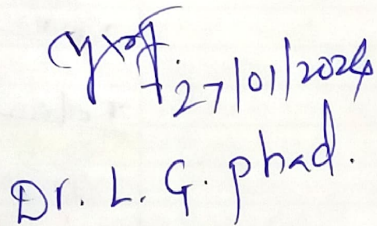 27/01/2024
Dr. L. G. phad.